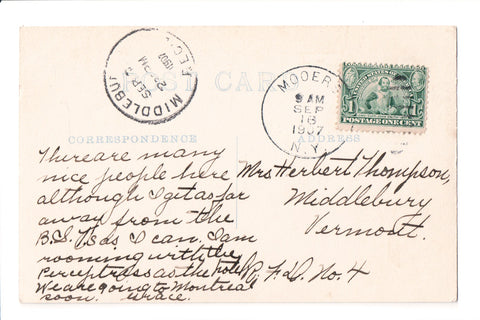 MIDDLEBU
SEP
2
PM
1907
REC'D
POST CARD
MOOERS
9 AM
SEP
16
1907
N.Y.
UNITED STATES OF AMERICA
1 1
POSTAGE ONE CENT
CORRESPONDENCE
ADDRESS
There are many
nice people here
although I get as far
away from the
as I can. I am
rooming with the
Perceptress as the hotel
We are going to Montreal
soon. Grace.
Mrs Herbert Thompson,
Middlebury
Vermont.
R. F. D. No. 4